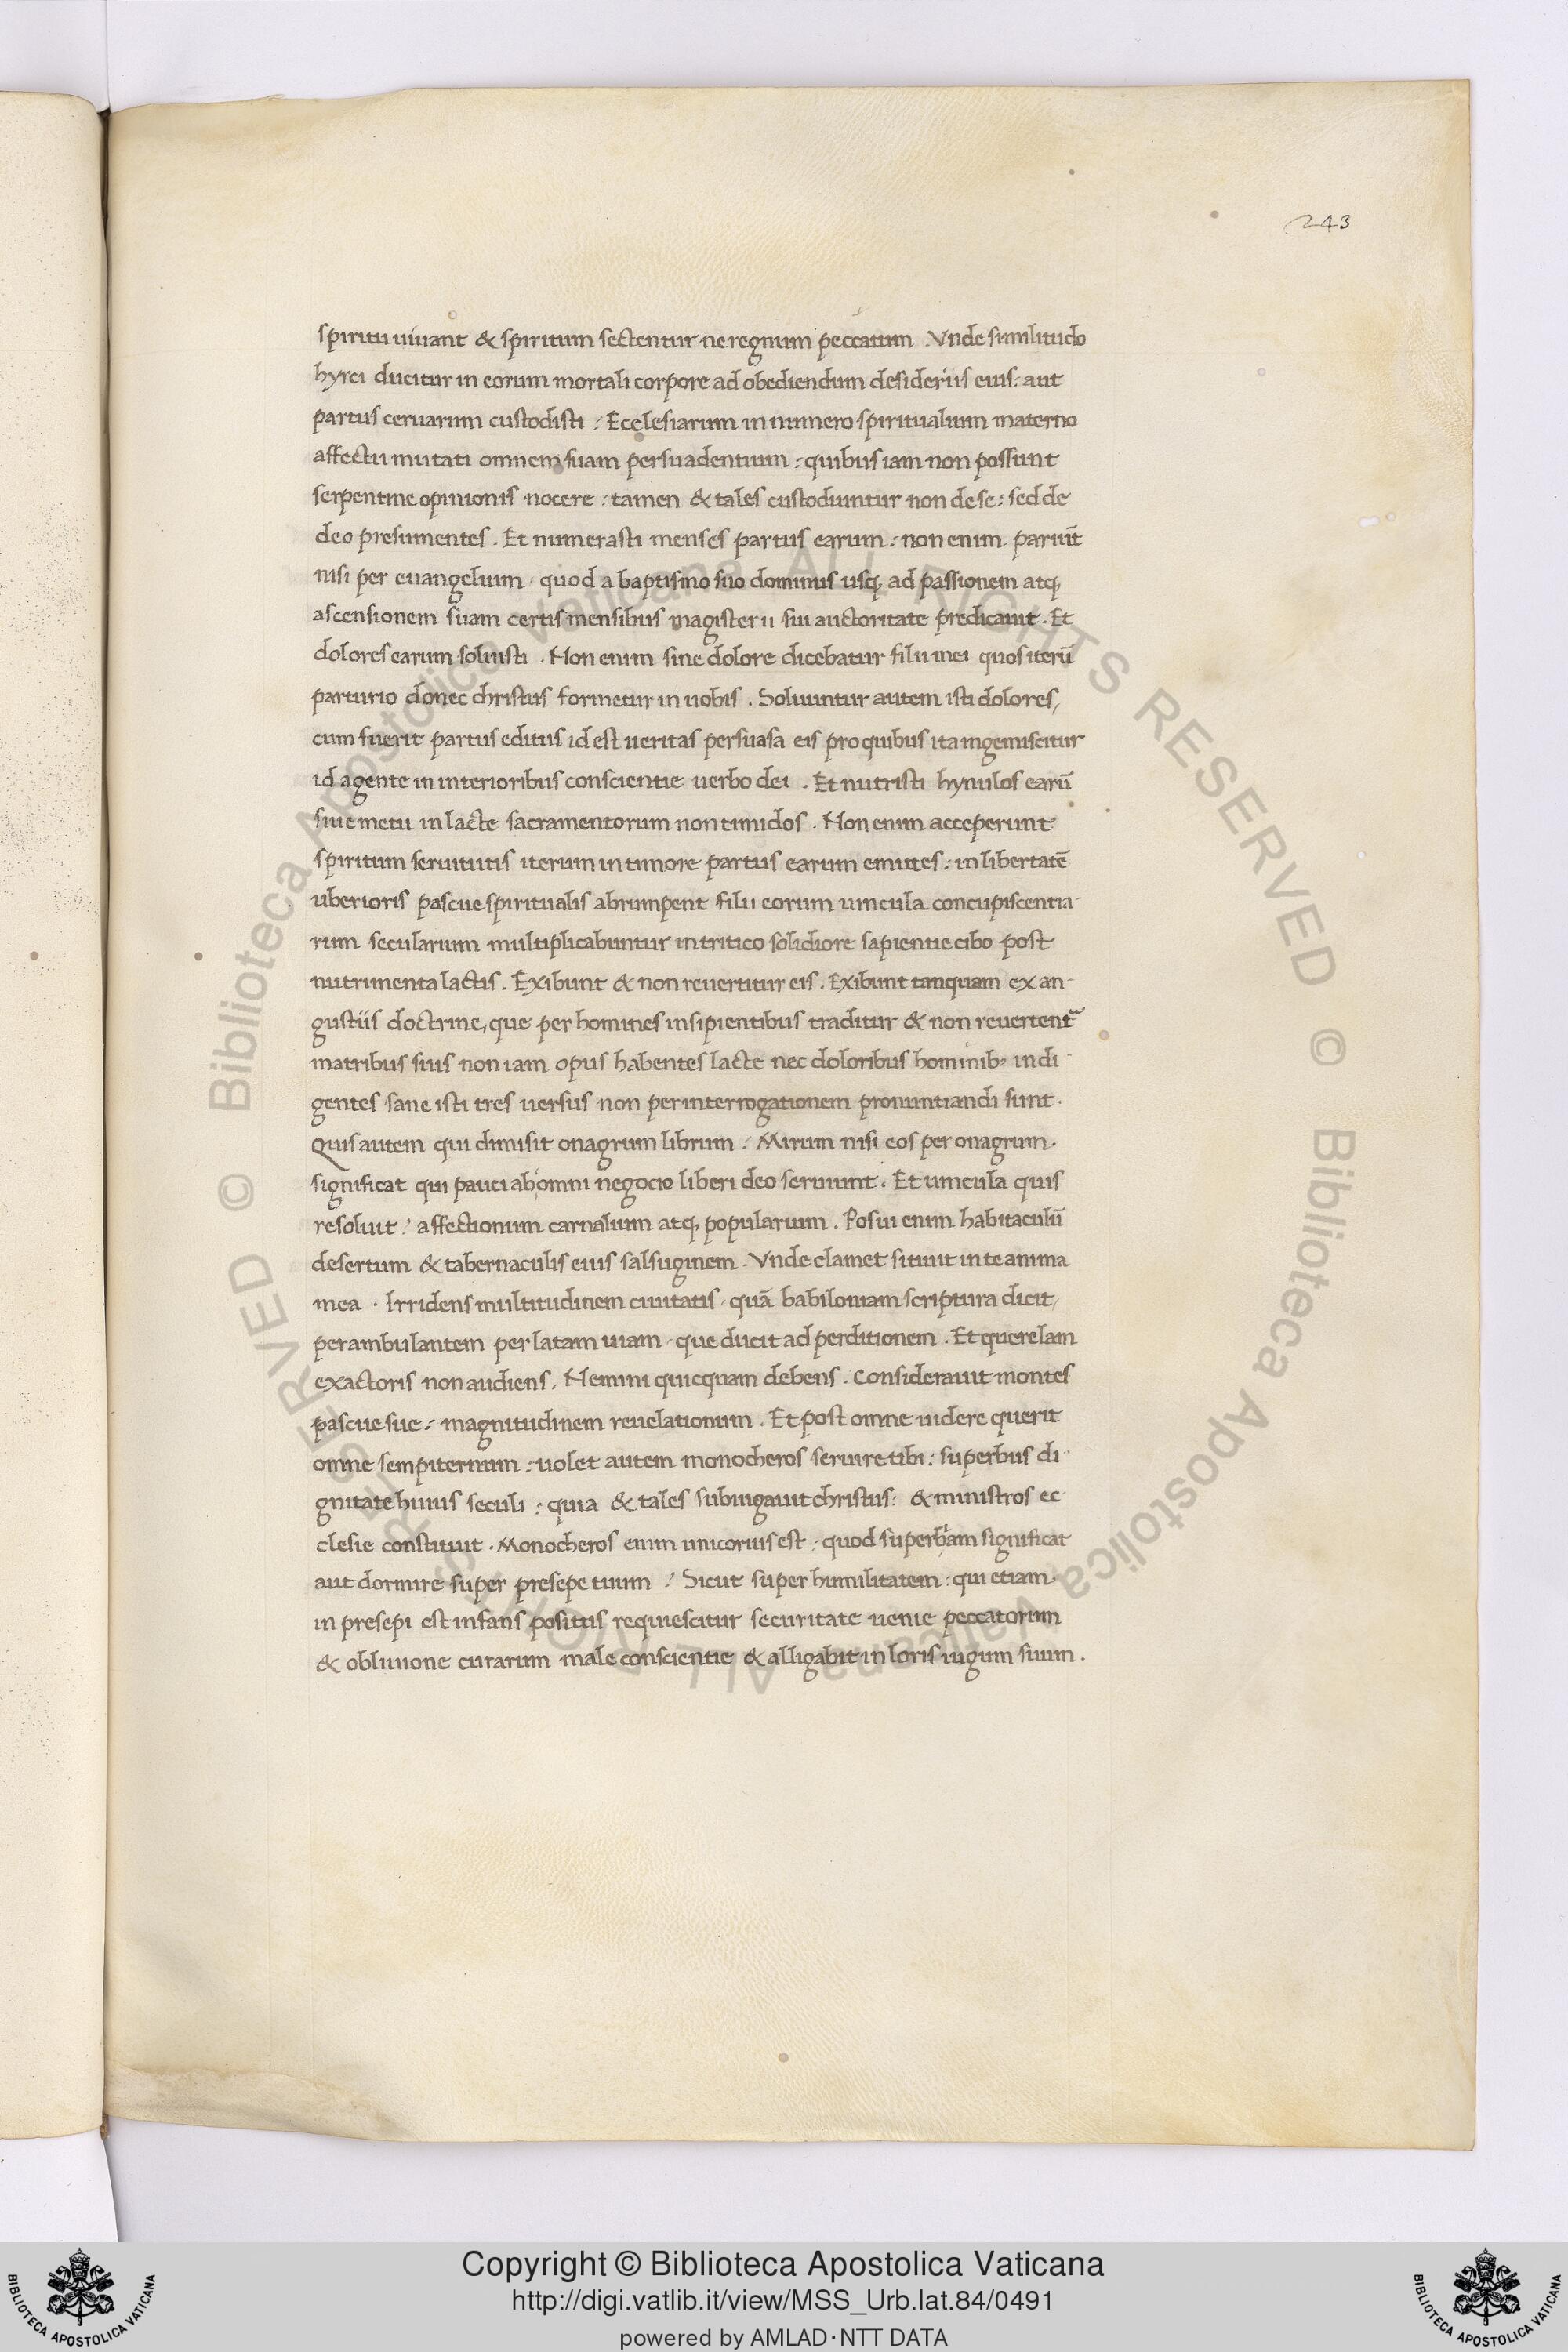 243
spiritu uiuant & spiritum sectentur ne regnum peccatum . Vnde similitudo
hyrci ducitur in eorum mortali corpore ad obediendum desideriis eius : aut
partus ceruarum custodisti : Ecclesiarum in numero spiritualium materno
affectu mutati omnem suam persuadentium : quibus iam non possunt
serpentine opinionis nocere : tamen & tales custodiuntur non de se : sed de
deo presumentes . Et numerasti menses partus earum : non enim pariūt
nisi per euangelium . quod a baptismo suo dominus usq; ad passionem atq;
ascensionem suam certis mensibus magisterii sui auctoritate predicauit . Et
dolores earum soluisti . Non enim sine dolore dicebatur filii mei quos iterū
parturio donec christus formetur in uobis . Soluuntur autem isti dolores,
cum fuerit partus editus id est ueritas persuasa eis pro quibus ita ingemiscitur
id agente in interioribus conscientie uerbo dei . Et nutristi hynulos earū
siue metu in lacte sacramentorum non timidos . Non enim acceperunt
spiritum seruitutis iterum in timore partus earum emittes : in libertatē
uberioris pascue spiritualis abrumpent filii eorum uincula concupiscentia-
rum secularium multiplicabuntur in tritico solidiore sapientie cibo post
nutrimenta lactis . Exibunt & non reuertitur eis . Exibunt tanquam ex an-
gustiis doctrine, que per homines insipientibus traditur & non reuertent᷑
matribus suis non iam opus habentes lacte nec doloribus hominib; indi-
gentes sane isti tres uersus non per interrogationem pronuntiandi sunt .
Quis autem qui dimisit onagrum librum : Mirum nisi eos per onagrum .
significat qui pauci ab omni negocio liberi deo seruiunt . Et uincula quis
resoluit : affectionum carnalium atq; popularium . Posui enim habitaculū
desertum & tabernaculis eius salsuginem . Vnde clamet sitiuit in te anima
mea . Irridens multitudinem ciuitatis . quā babiloniam scriptura dicit,
perambulantem per latam uiam . que ducit ad perditionem . Et querelam
exactoris non audiens . Nemini quicquam debens . Considerauit montes
pascue sue : magnitudinem reuelationum . Et post omne uidere querit
omne sempiternum : uolet autem monocheros seruire tibi : superbus di-
gnitate huius seculi : quia & tales subiugauit christus : & ministros ec
clesie constituit . Monocheros enim unicorius est : quod superbiam significat
aut dormire super presepe tuum : Sicut super humilitatem : qui etiam
in presepi est infans positus requiescitur securitate uenie peccatorum
& obliuione curarum male conscientie & alligabit in loris iugum suum .
© Biblioteca Apostolica Vaticana ALL RIGHTS RESERVED © Biblioteca Apostolica Vaticana ALL RIGHTS RESERVED
Copyright © Biblioteca Apostolica Vaticana
http://digi.vatlib.it/view/MSS_Urb.lat.84/0491
powered by AMLAD·NTT DATA
BIBLIOTECA APOSTOLICA VATICANA
BIBLIOTECA APOSTOLICA VATICANA